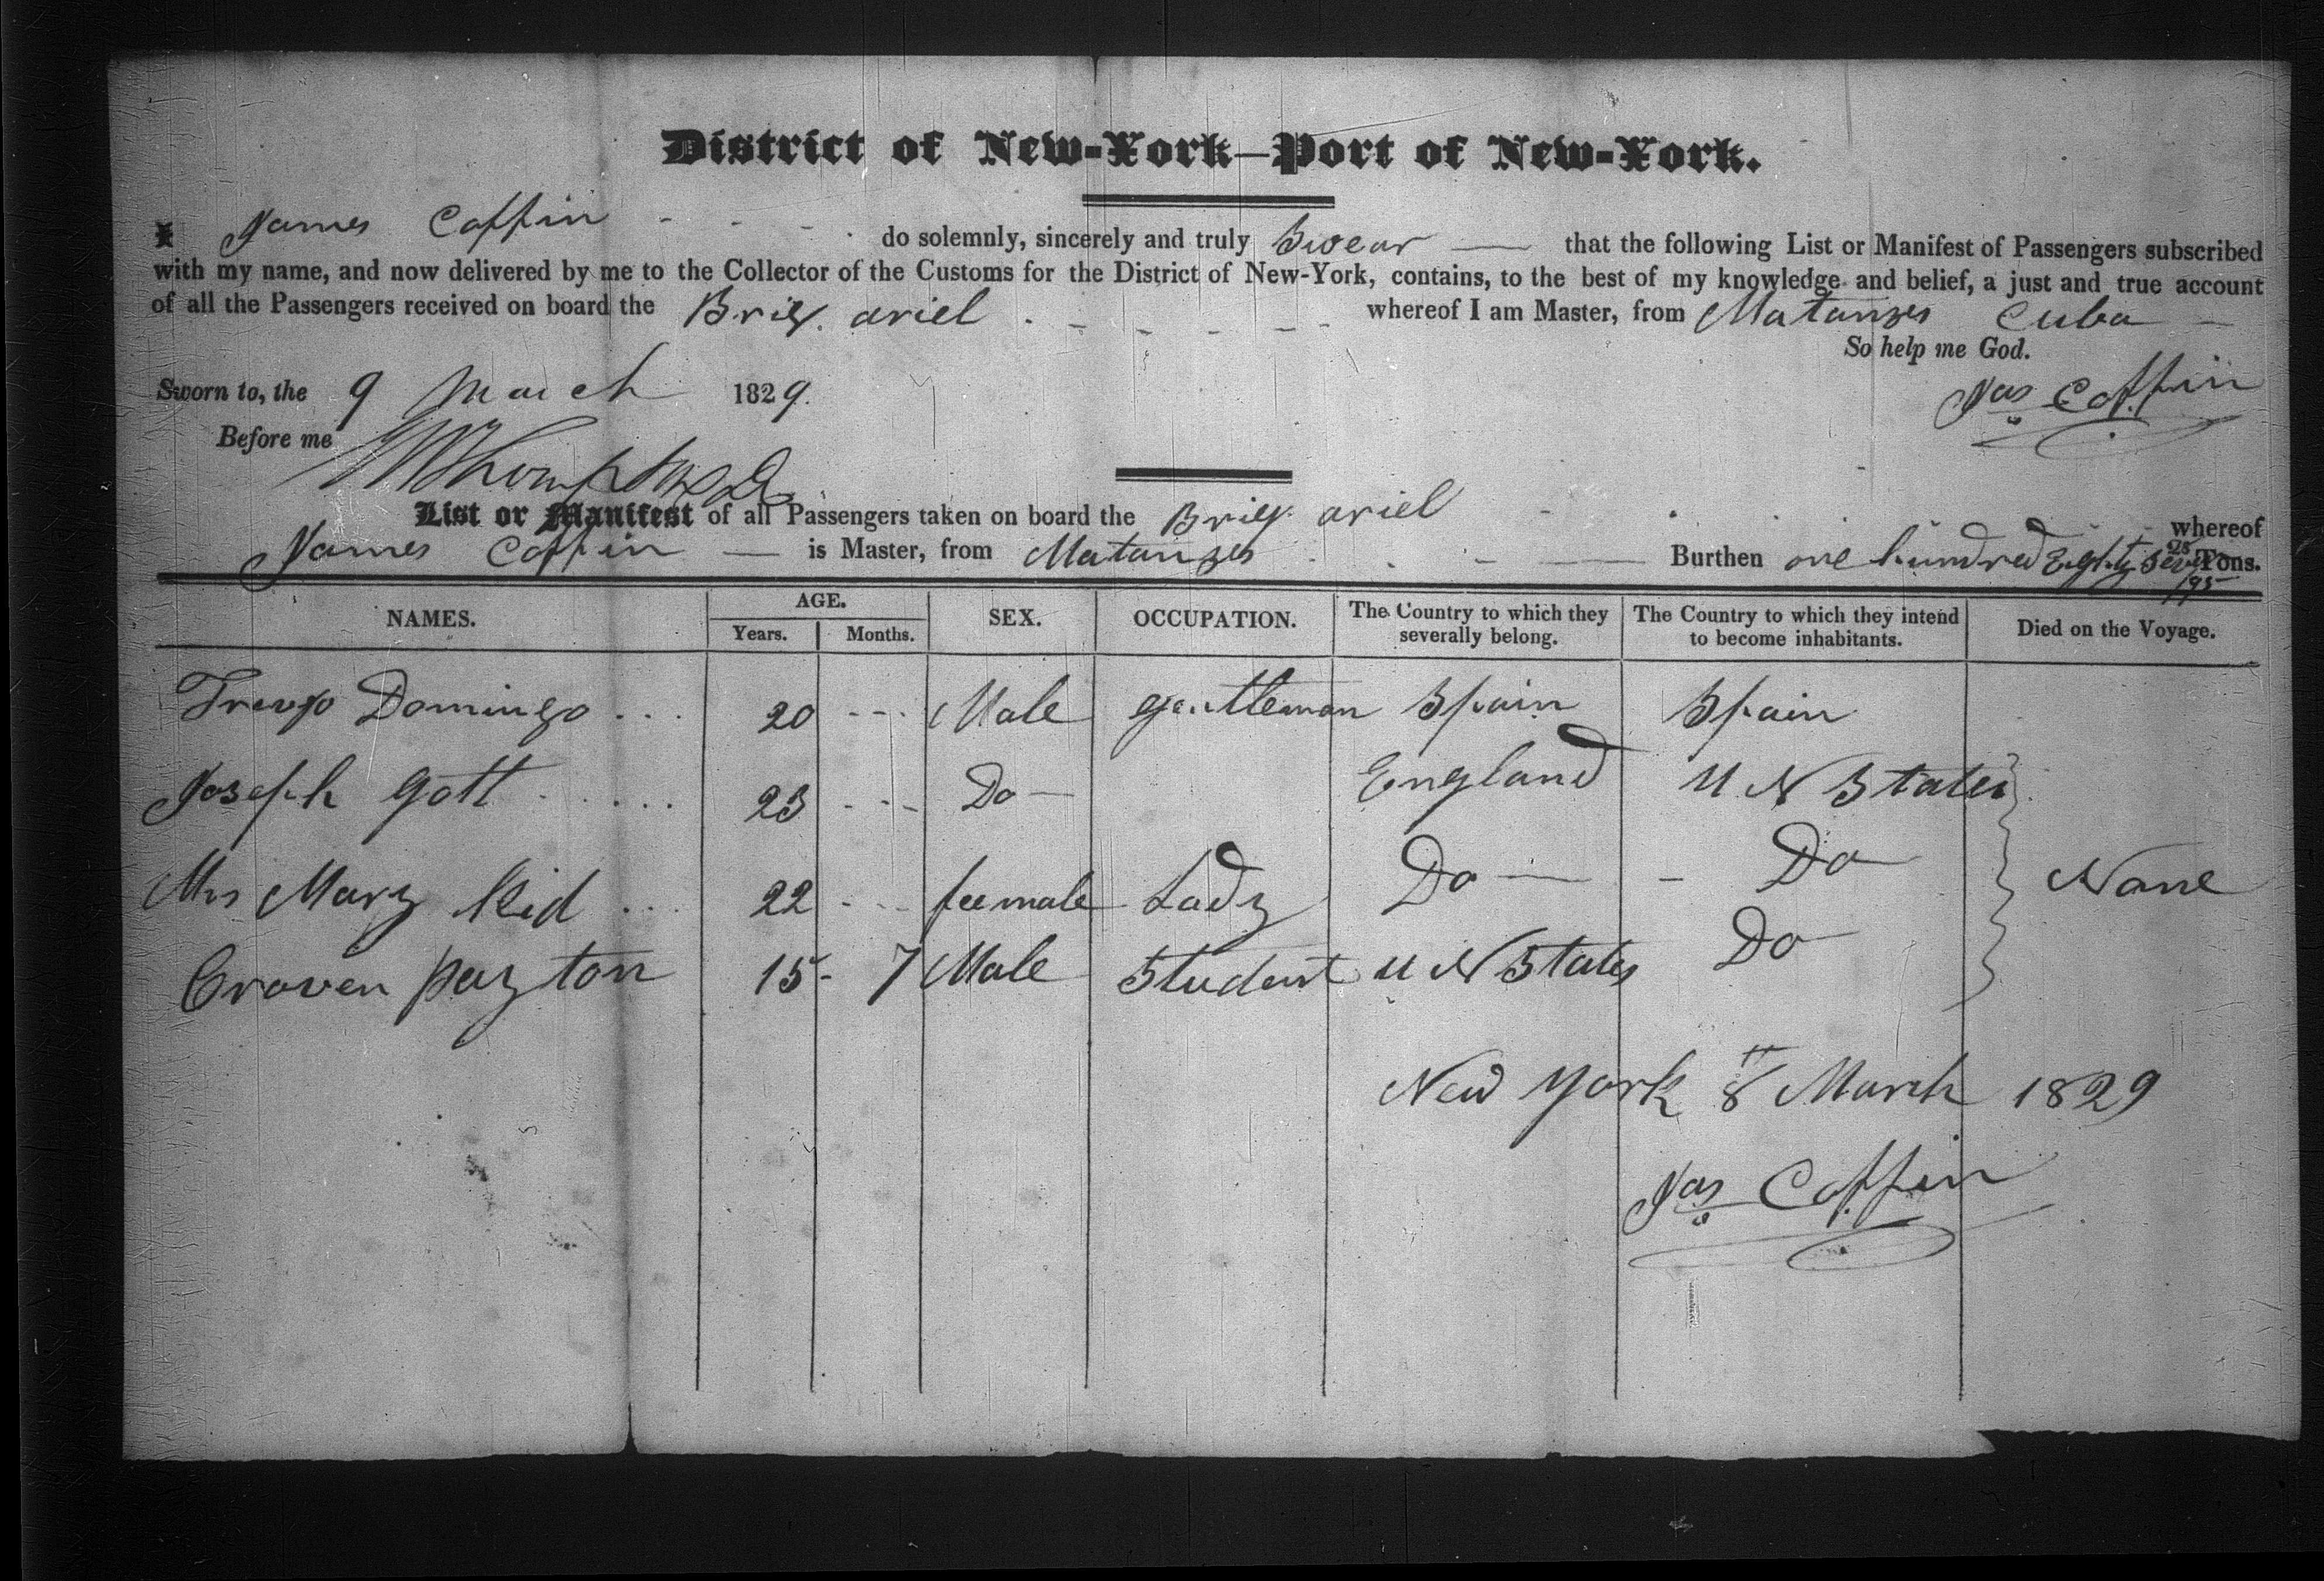 District of New-York—Port of New-York.
I James Coffin - - - - do solemnly, sincerely and truly Swear — that the following List or Manifest of Passengers subscribed
with my name, and now delivered by me to the Collector of the Customs for the District of New-York, contains, to the best of my knowledge and belief, a just and true account
of all the Passengers received on board the Brig. ariel . - - - - - whereof I am Master, from Matanzes Cuba -
So help me God.
Sworn to, the 9 March 1829.
Jas Coffin
Before me
List or Manifest of all Passengers taken on board the Brig. ariel whereof
James Coffin — is Master, from Matanzes - - — Burthen one hundred Eighty Seven 25/95 Tons.
NAMES. AGE. SEX. OCCUPATION. The Country to which they severally belong. The Country to which they intend to become inhabitants. Died on the Voyage.
Years. Months.
Domingo ... 20 --- Male gentleman Spain Spain
Joseph Gott ..... 23 --- Do — England U N States
Mrs Mary Reid ... 22 --- feemale Lady Do — - Do None
Craven payton 15 - 7 Male Student U N States Do
New York 8 March 1829
Jas Coffin